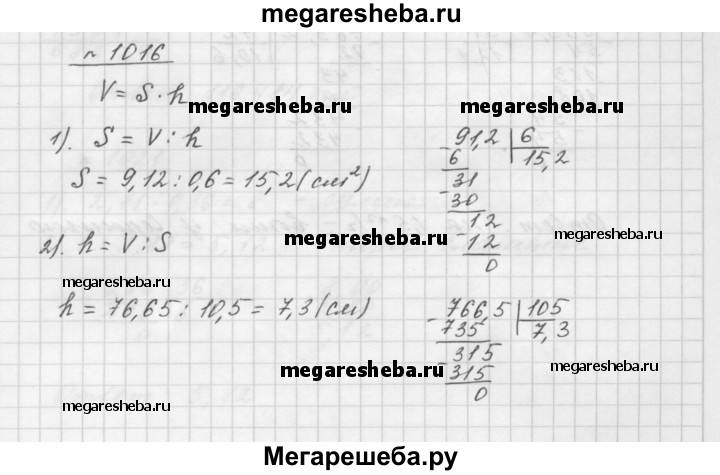 megaresheba.ru
№ 1016
V = S · h
megaresheba.ru
megaresheba.ru
1). S = V : h
S = 9,12 : 0,6 = 15,2 (см²)
- 91,2 | 6
6 15,2
- 31
30
- 12
12
0
megaresheba.ru
megaresheba.ru
2). h = V : S
megaresheba.ru
h = 76,65 : 10,5 = 7,3 (см)
- 766,5 | 105
735 7,3
- 315
315
0
megaresheba.ru
megaresheba.ru
megaresheba.ru
Мегарешеба.ру